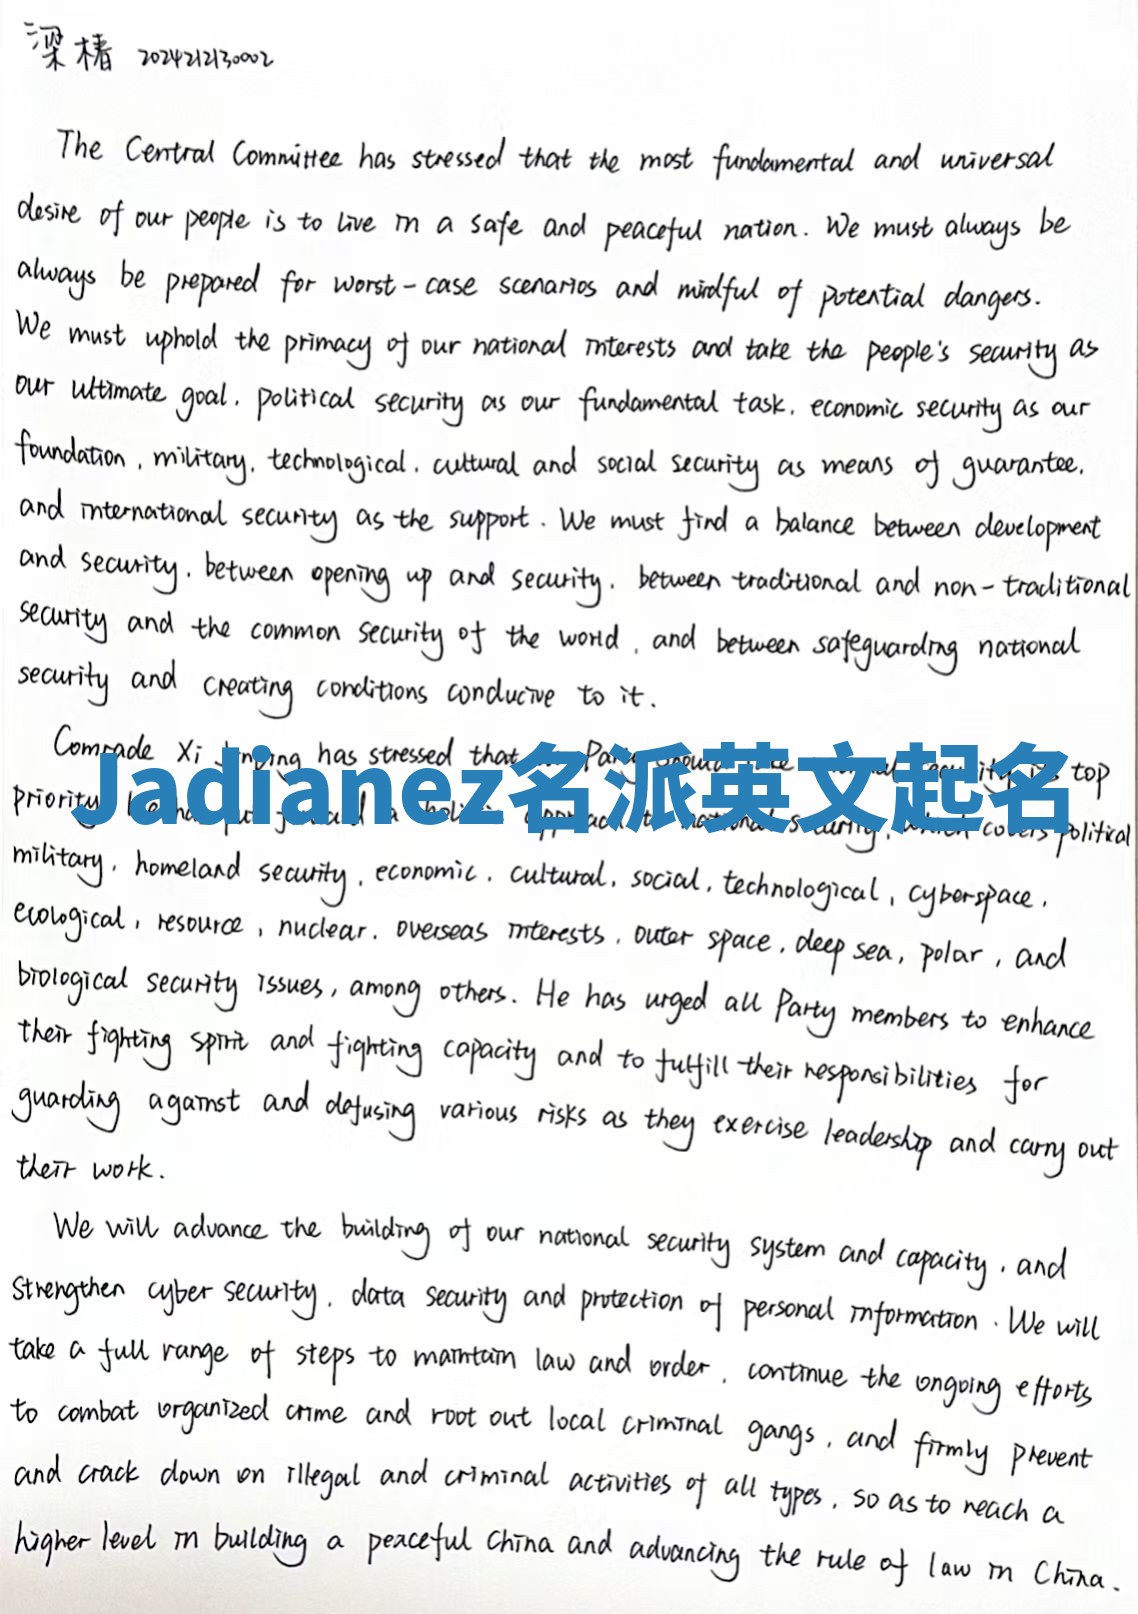 梁椿 2024212130002
The Central Committee has stressed that the most fundamental and universal
desire of our people is to live in a safe and peaceful nation. We must always be
always be prepared for worst-case scenarios and mindful of potential dangers.
We must uphold the primacy of our national interests and take the people's security as
our ultimate goal, political security as our fundamental task, economic security as our
foundation, military, technological, cultural and social security as means of guarantee,
and international security as the support. We must find a balance between development
and security, between opening up and security, between traditional and non-traditional
security and the common security of the world, and between safeguarding national
security and creating conditions conducive to it.
Comrade Xi Jinping has stressed that Party should security its top
Jadianez名派英文起名
priority. He has put forward a holistic approach to national security, which covers political
military, homeland security, economic, cultural, social, technological, cyberspace,
ecological, resource, nuclear, overseas interests, outer space, deep sea, polar, and
biological security issues, among others. He has urged all Party members to enhance
their fighting spirit and fighting capacity and to fulfill their responsibilities for
guarding against and defusing various risks as they exercise leadership and carry out
their work.
We will advance the building of our national security system and capacity, and
strengthen cyber security, data security and protection of personal information. We will
take a full range of steps to maintain law and order, continue the ongoing efforts
to combat organized crime and root out local criminal gangs, and firmly prevent
and crack down on illegal and criminal activities of all types, so as to reach a
higher level in building a peaceful China and advancing the rule of law in China.